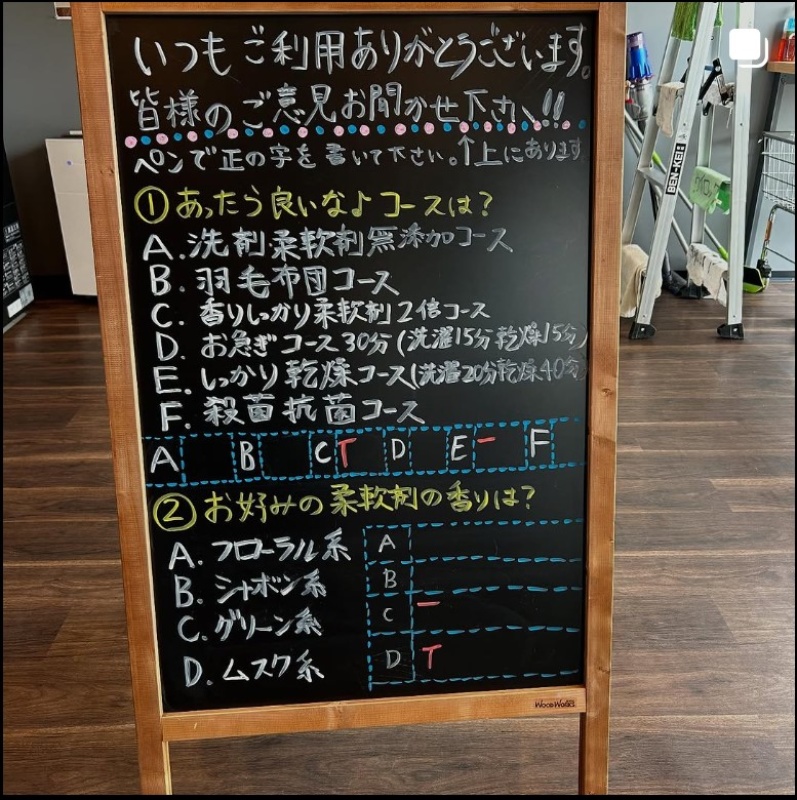 いつもご利用ありがとうございます。
皆様のご意見お聞かせ下さい!!
ペンで正の字を書いて下さい。↑上にあります
① あったら良いなよコースは?
A. 洗剤柔軟剤無添加コース
B. 羽毛布団コース
C. 香りしっかり柔軟剤2倍コース
D. お急ぎコース30分(洗濯15分乾燥15分)
E. しっかり乾燥コース(洗濯20分乾燥40分
F. 殺菌抗菌コース
A B C T D E 一 F
② お好みの柔軟剤の香りは?
A. フローラル系
B. シャボン系
C. グリーン系
D. ムスク系
A
B
C 一
D T
WOOD WORKS
BEN-KEI